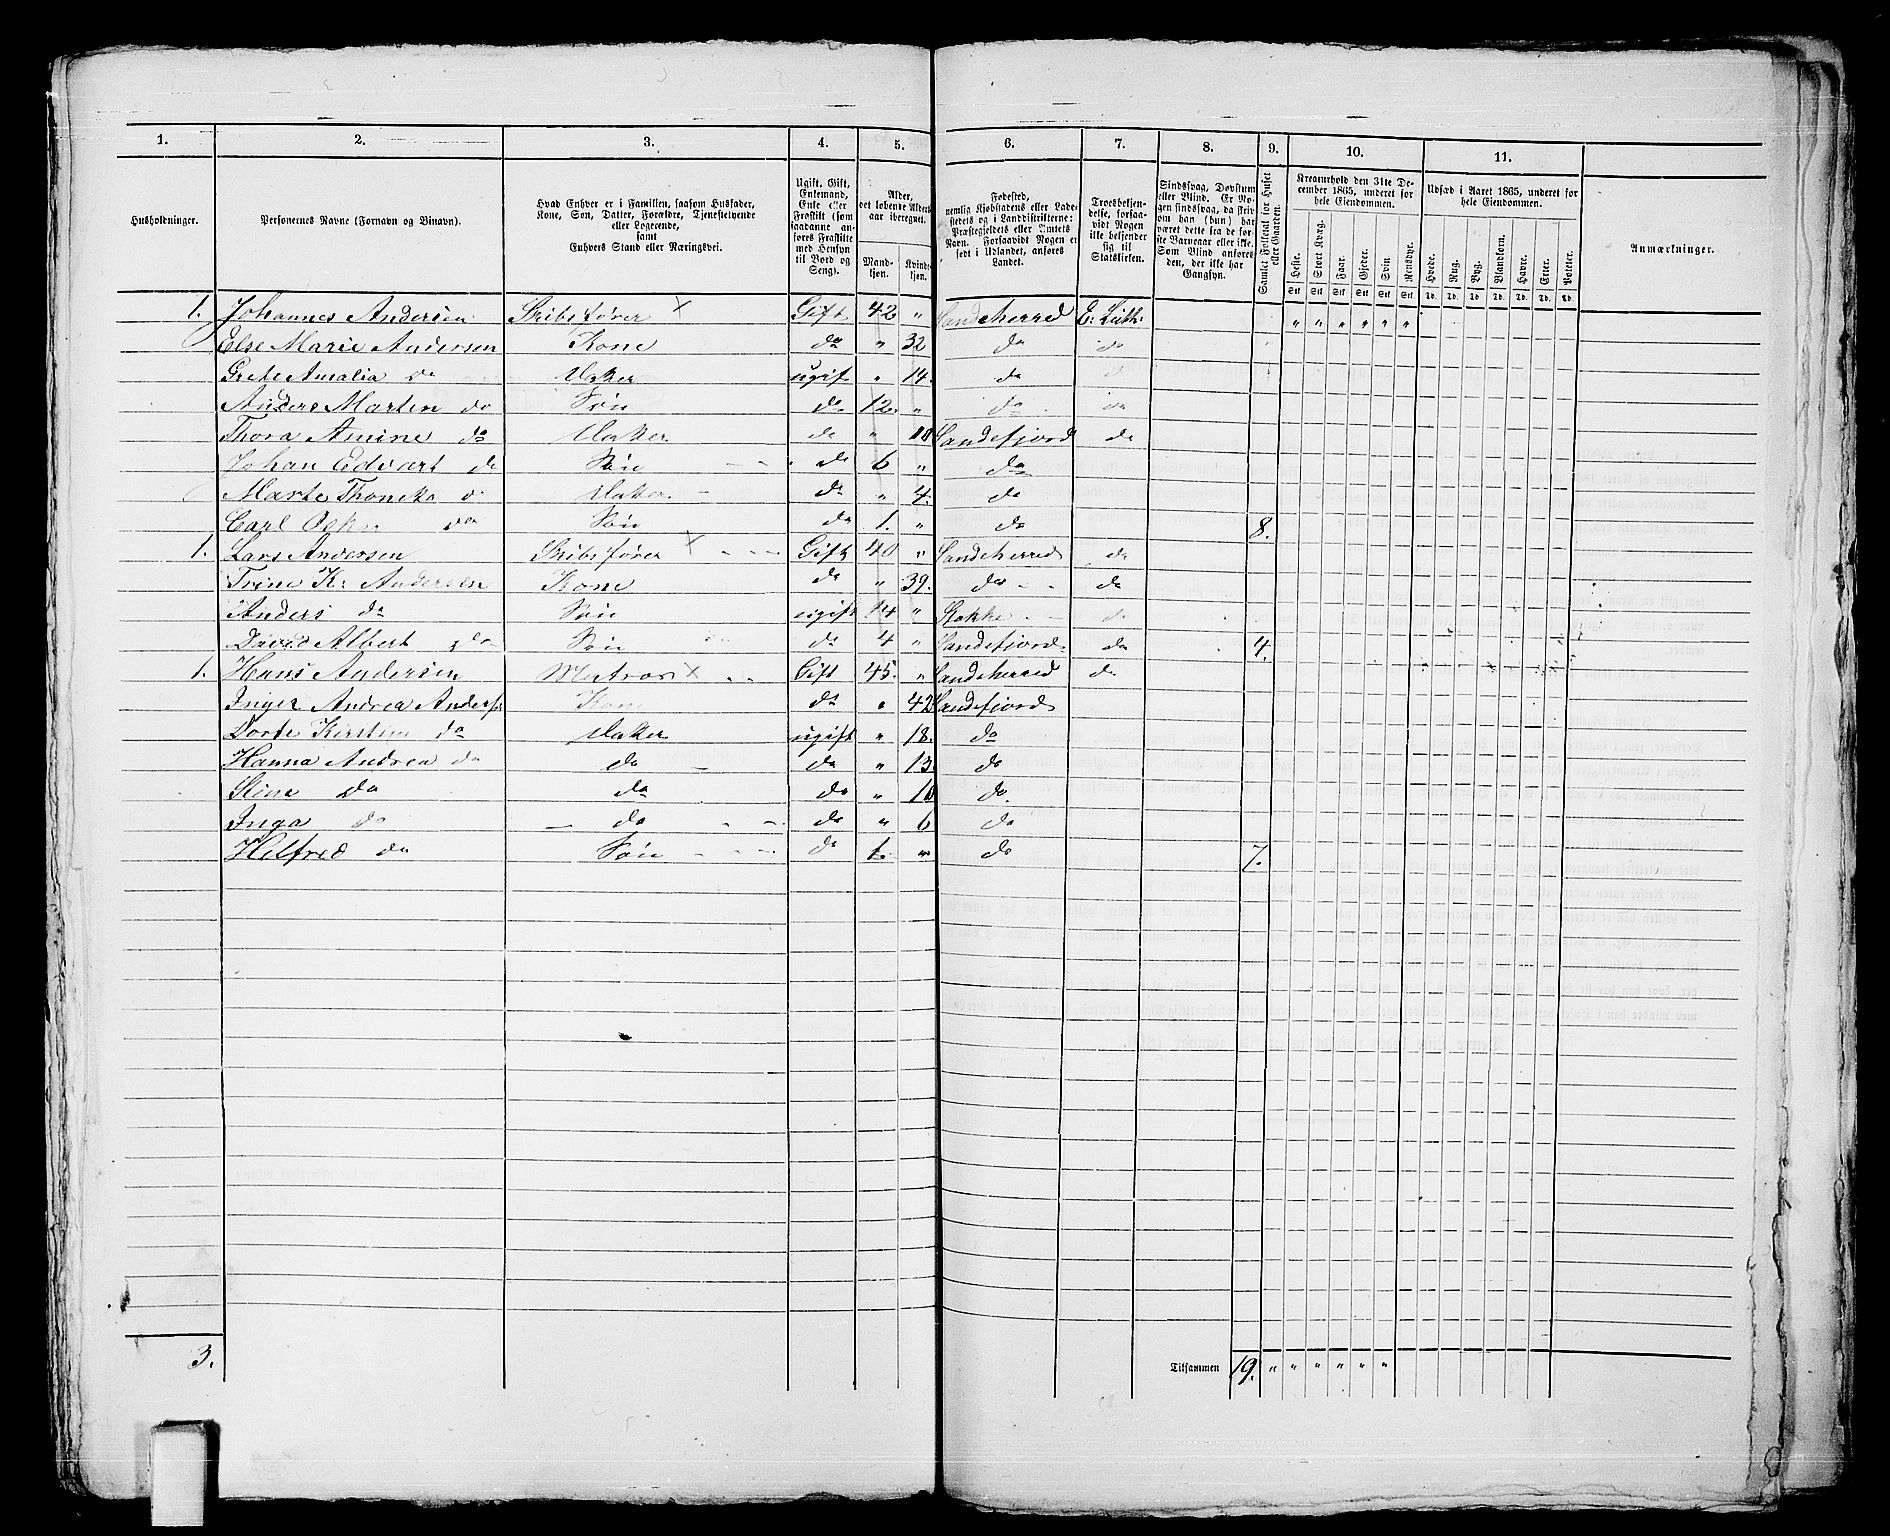 1. 2. 3. 4. 5. 6. 7. 8. 9. 10. 11.
Husholdninger.
Personernes Navne (Fornavn og Binavn).
Hvad Enhver er i Familien, saasom Husfader, Kone, Søn, Datter, Forældre, Tjenestetyende eller Logerende, samt Enhvers Stand eller Næringsvei.
Ugift, Gift, Enkemand, Enke eller Fraskilt (som saadanne anføres Fraskilte med Hensyn til Bord og Seng).
Alder, det løbende Alders-aar iberegnet.
Mandkjøn. Kvindekjøn.
Fødested, nemlig Kjøbstadens eller Ladestedets og i Landdistrikterne: Præstegjeldets eller Amtets Navn. Forsaavidt Nogen er født i Udlandet, anføres Landet.
Troesbekjendelse, forsaavidt Nogen ikke bekjender sig til Statskirken.
Sindssvag, Døvstum eller Blind. Er Nogen sindssvag, da skrives om han (hun) har været dette fra de første Barneaar eller ikke. Som Blind anføres den, der ikke har Gangsyn.
Samlet Folketal for Huset eller Gaarden.
Kreaturhold den 31te December 1865, underet for hele Eiendommen.
Heste. Stort Kvæg. Faar. Gjeder. Svin. Rensdyr.
Stk Stk Stk Stk Stk Stk
Udsæd i Aaret 1865, underet for hele Eiendommen.
Hvede. Rug. Byg. Blandkorn. Havre. Erter. Poteter.
Td. Td. Td. Td. Td. Td. Td.
Anmærkninger.
1. Johannes Andersen Skibsfører X Gift 42 " Sandeherred E: Luth: " " " " " "
Else Marie Andersen Kone do " 32 do do
Grete Amalia do Dater ugift " 14. do
Anders Marten do Søn do 12. " do do
Thora Amine do Dater do " 10 Sandefjord do
Johan Edvart do Søn do 6 " do
Marte do Dater do " 4. do
Carl do Søn do 1. " do 8.
1. Lars Andersen Skibsfører X Gift 40 " Sandeherred do
Trine K: Andersen Kone do " 39. do do
Anders do Søn ugift 14 " Stokke do
David Albert do Søn do 4 " Sandefjord do 4.
1. Hans Andersen Matros X Gift 45. " Sandeherred do
Inger Andrea Anders Kone do " 42 Sandefjord
Dorte Kirstine do Dater ugift " 18. do
Hanna Andrea do do do " 13 do
Stine do do do " 10 do
Inga do do do " 6 do
Helfred do Søn do 1. " do 7.
3. Tilsammen 19. " " " " " "